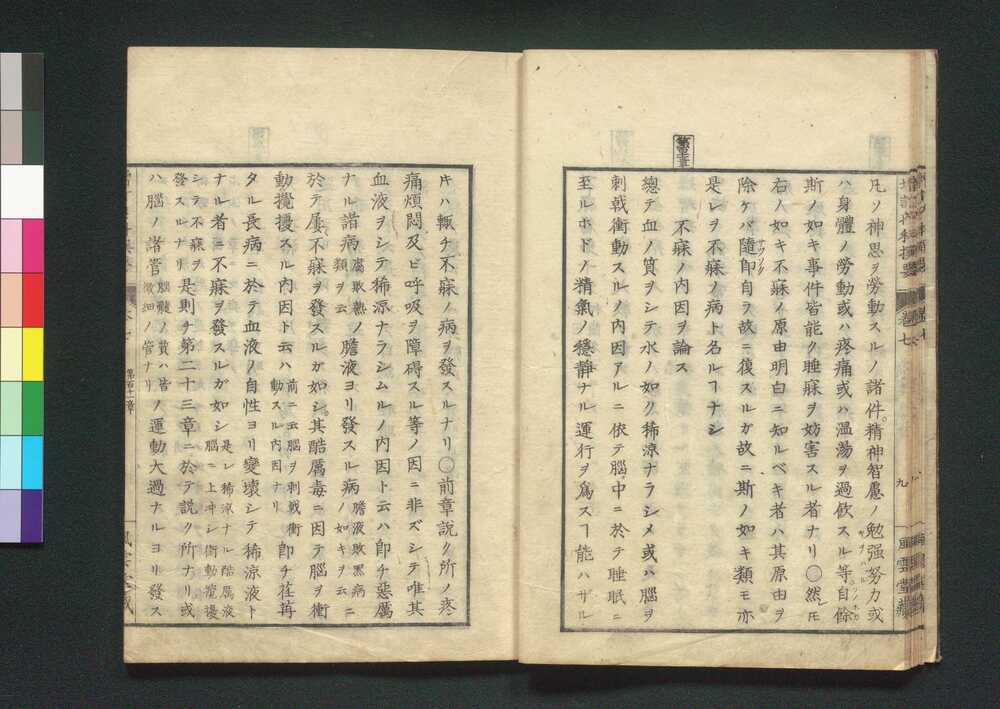 凡ソ神思ヲ勞動スルノ諸件。精神智慮ノ勉强努力或
ハ身體ノ勞動或ハ疼痛或ハ溫湯ヲ過飮スル等自餘
斯ノ如キ事件皆能ク睡寐ヲ妨害スル者ナリ〇然𪜈
右ノ如キ不寐ノ原由明白ニ知ルベキ者ハ其原由ヲ
除ケバ隨卽自ラ故ニ復スルガ故ニ斯ノ如キ類モ亦
是レヲ不寐ノ病ト名ルヿナシ
不寐ノ内因ヲ論ス
第百十二章
總テ血ノ質ヲシテ水ノ如ク稀涼ナラシメ或ハ腦ヲ
刺戟衝動スルノ内因アルニ依テ腦中ニ於テ睡眠ニ
至ルホドノ精氣ノ穩靜ナル運行ヲ爲スヿ能ハザル
卷七
九
風雲堂藏
キハ輙チ不寐ノ病ヲ發スルナリ〇前章說ク所ノ疼
痛煩悶及ビ呼吸ヲ障碍スル等ノ因ニ非ズシテ唯其
血液ヲシテ稀涼ナラシムルノ内因ト云ハ卽チ惡厲
ナル諸病腐敗熱ノ類ヲ云膽液ヨリ發スル病膽液敗黑病ノ如キヲ云ニ
於テ屢不寐ヲ發スルガ如シ。其酷厲毒ニ因テ腦ヲ衝
動攪擾スル内因ト云ハ前ニ云腦ヲ刺戟衝動スル内因ナリ卽チ荏苒
タル長病ニ於テ血液ノ自性ヨリ變壞シテ稀涼液ト
ナル者ニ不寐ヲ發スルガ如シ是レ稀涼ナル酷厲液腦ニ上ヰシ衝動攪擾
シテ不寐ヲ發スルナリ是則チ第二十三章ニ於テ說ク所ナリ或
ハ腦ノ諸管腦髓ノ質ハ皆微細ノ管ナリノ運動大過ナルヨリ發ス
第百十二章